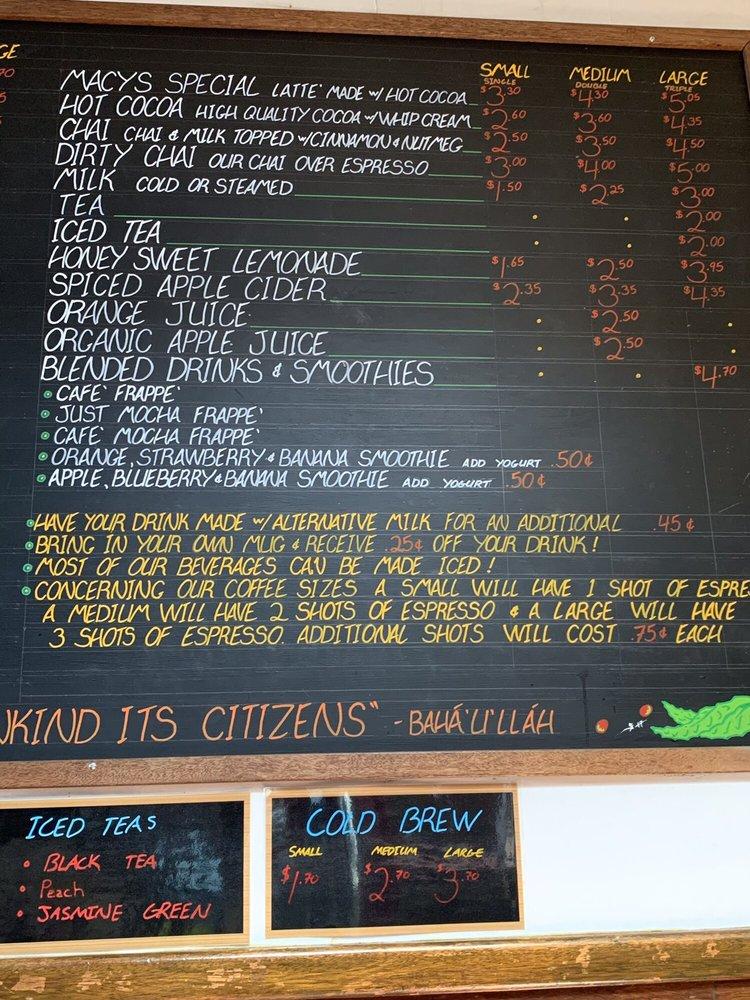 GE
SMALL MEDIUM LARGE
SINGLE DOUBLE TRIPLE
MACYS SPECIAL LATTE' MADE w/ HOT COCOA $3.30 $4.30 $5.05
HOT COCOA HIGH QUALITY COCOA w/WHIP CREAM $2.60 $3.60 $4.35
CHAI CHAI & MILK TOPPED w/CINNAMON & NUTMEG $2.50 $3.50 $4.50
DIRTY CHAI OUR CHAI OVER ESPRESSO $3.00 $4.00 $5.00
MILK COLD OR STEAMED $1.50 $2.25 $3.00
TEA $2.00
ICED TEA $2.00
HONEY SWEET LEMONADE $1.65 $2.50 $3.95
SPICED APPLE CIDER $2.35 $3.35 $4.35
ORANGE JUICE $2.50
ORGANIC APPLE JUICE $2.50
BLENDED DRINKS & SMOOTHIES $4.70
CAFE' FRAPPE'
JUST MOCHA FRAPPE'
CAFE' MOCHA FRAPPE'
ORANGE, STRAWBERRY & BANANA SMOOTHIE ADD YOGURT .50¢
APPLE, BLUEBERRY & BANANA SMOOTHIE ADD YOGURT .50¢
HAVE YOUR DRINK MADE w/ALTERNATIVE MILK FOR AN ADDITIONAL .45¢
BRING IN YOUR OWN MUG & RECEIVE .25¢ OFF YOUR DRINK!
MOST OF OUR BEVERAGES CAN BE MADE ICED!
CONCERNING OUR COFFEE SIZES A SMALL WILL HAVE 1 SHOT OF ESPRE
A MEDIUM WILL HAVE 2 SHOTS OF ESPRESSO & A LARGE WILL HAVE
3 SHOTS OF ESPRESSO. ADDITIONAL SHOTS WILL COST .75¢ EACH
NKIND ITS CITIZENS" - BAHÁ'U'LLÁH
ICED TEAS
• BLACK TEA
• Peach
• JASMINE GREEN
COLD BREW
SMALL MEDIUM LARGE
$1.70 $2.70 $3.70